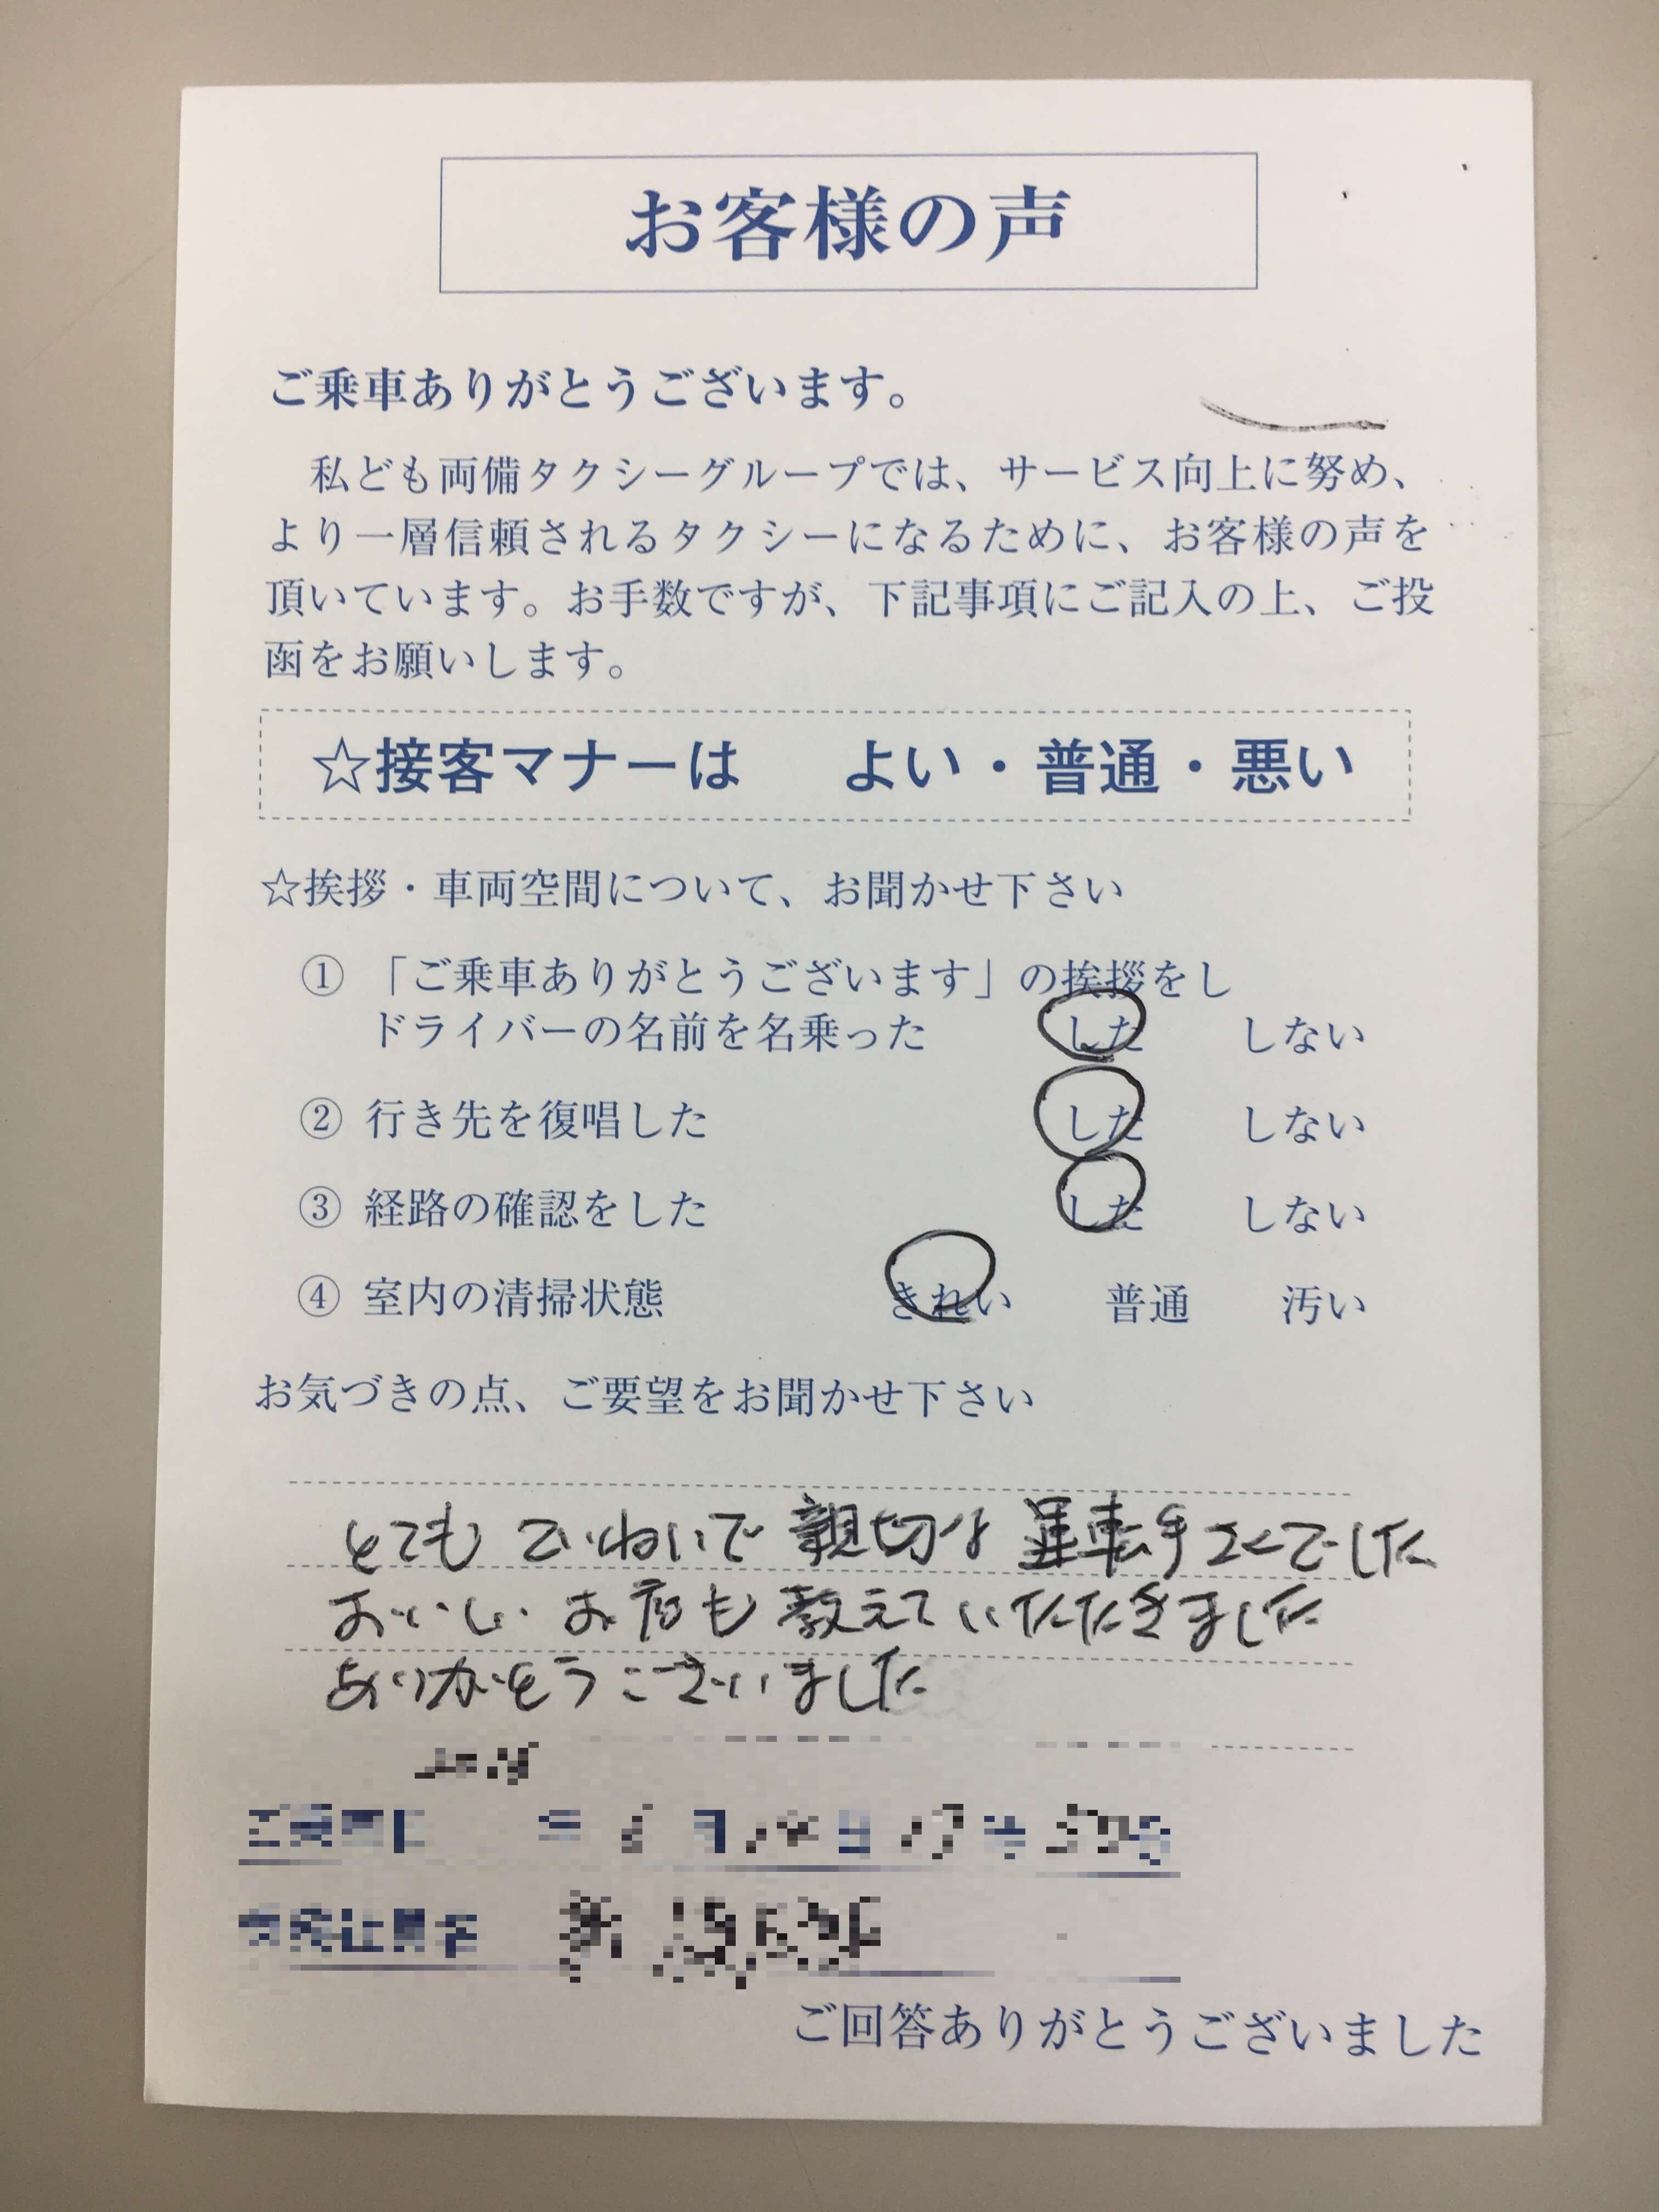 お客様の声
ご乗車ありがとうございます。
私ども両備タクシーグループでは、サービス向上に努め、
より一層信頼されるタクシーになるために、お客様の声を
頂いています。お手数ですが、下記事項にご記入の上、ご投
函をお願いします。
☆接客マナーは　よい・普通・悪い
☆挨拶・車両空間について、お聞かせ下さい
① 「ご乗車ありがとうございます」の挨拶をし
ドライバーの名前を名乗った　した　しない
② 行き先を復唱した　した　しない
③ 経路の確認をした　した　しない
④ 室内の清掃状態　きれい　普通　汚い
お気づきの点、ご要望をお聞かせ下さい
とても ていねいで 親切な 運転手さんでした
おいしい お店も 教えていただきました
ありがとうございました
ご回答ありがとうございました